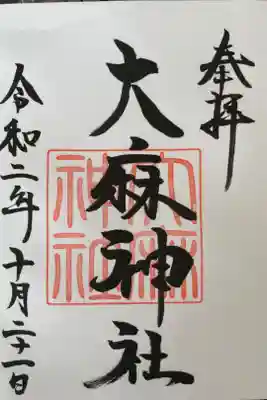 奉拝
大麻神社
令和二年十月二十一日
大麻
神社